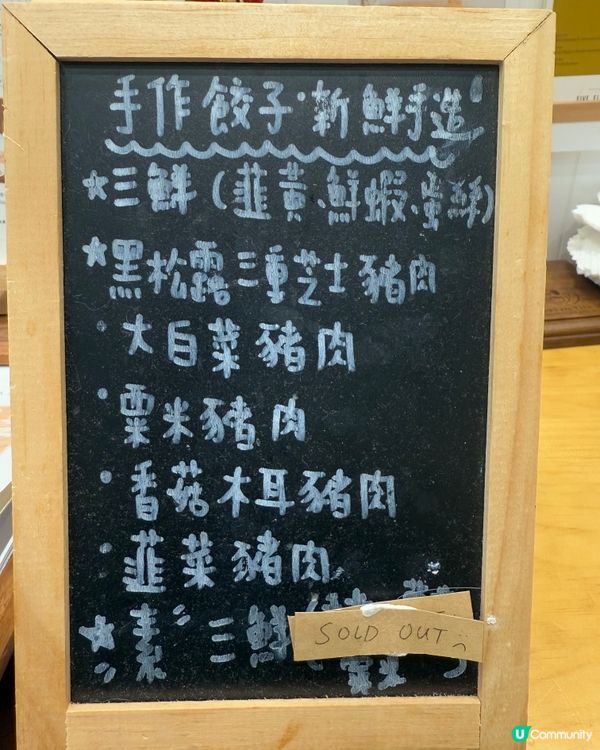 手作餃子·新鮮手造
☆三鮮(韮黃.鮮蝦.
☆黑松露三重芝士豬肉
·大白菜豬肉
·粟米豬肉
·香菇木耳豬肉
·韮菜豬肉
☆"素"三鮮(
SOLD OUT
U Community